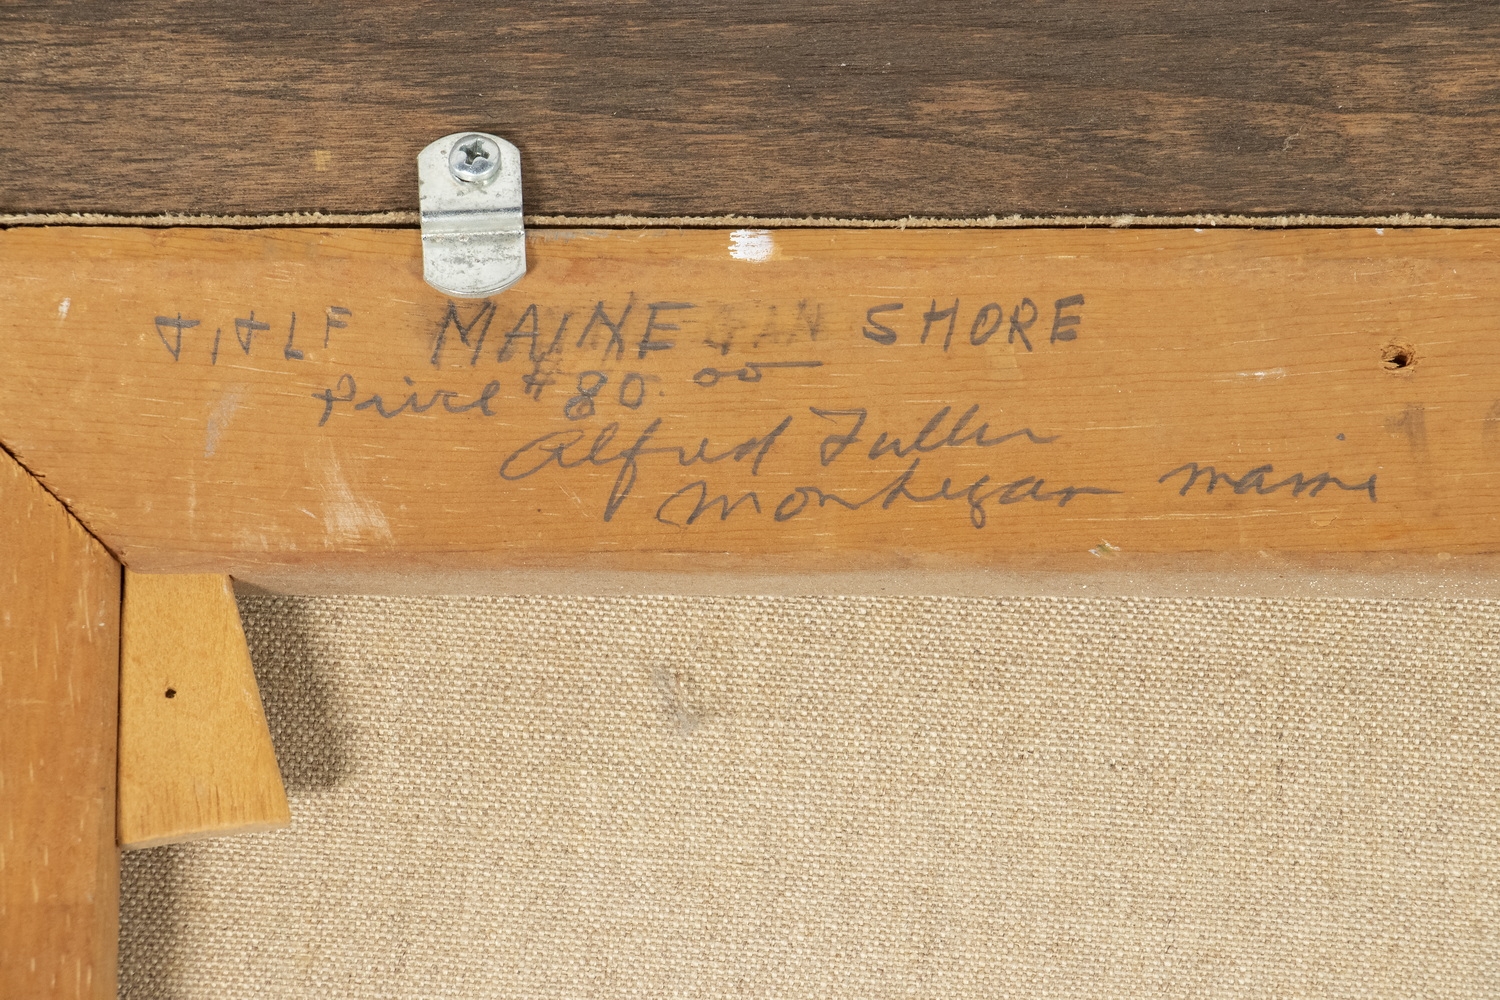 TITLE MAINE SHORE
Price $80.00
Alfred Fuller
Monhegan Maine